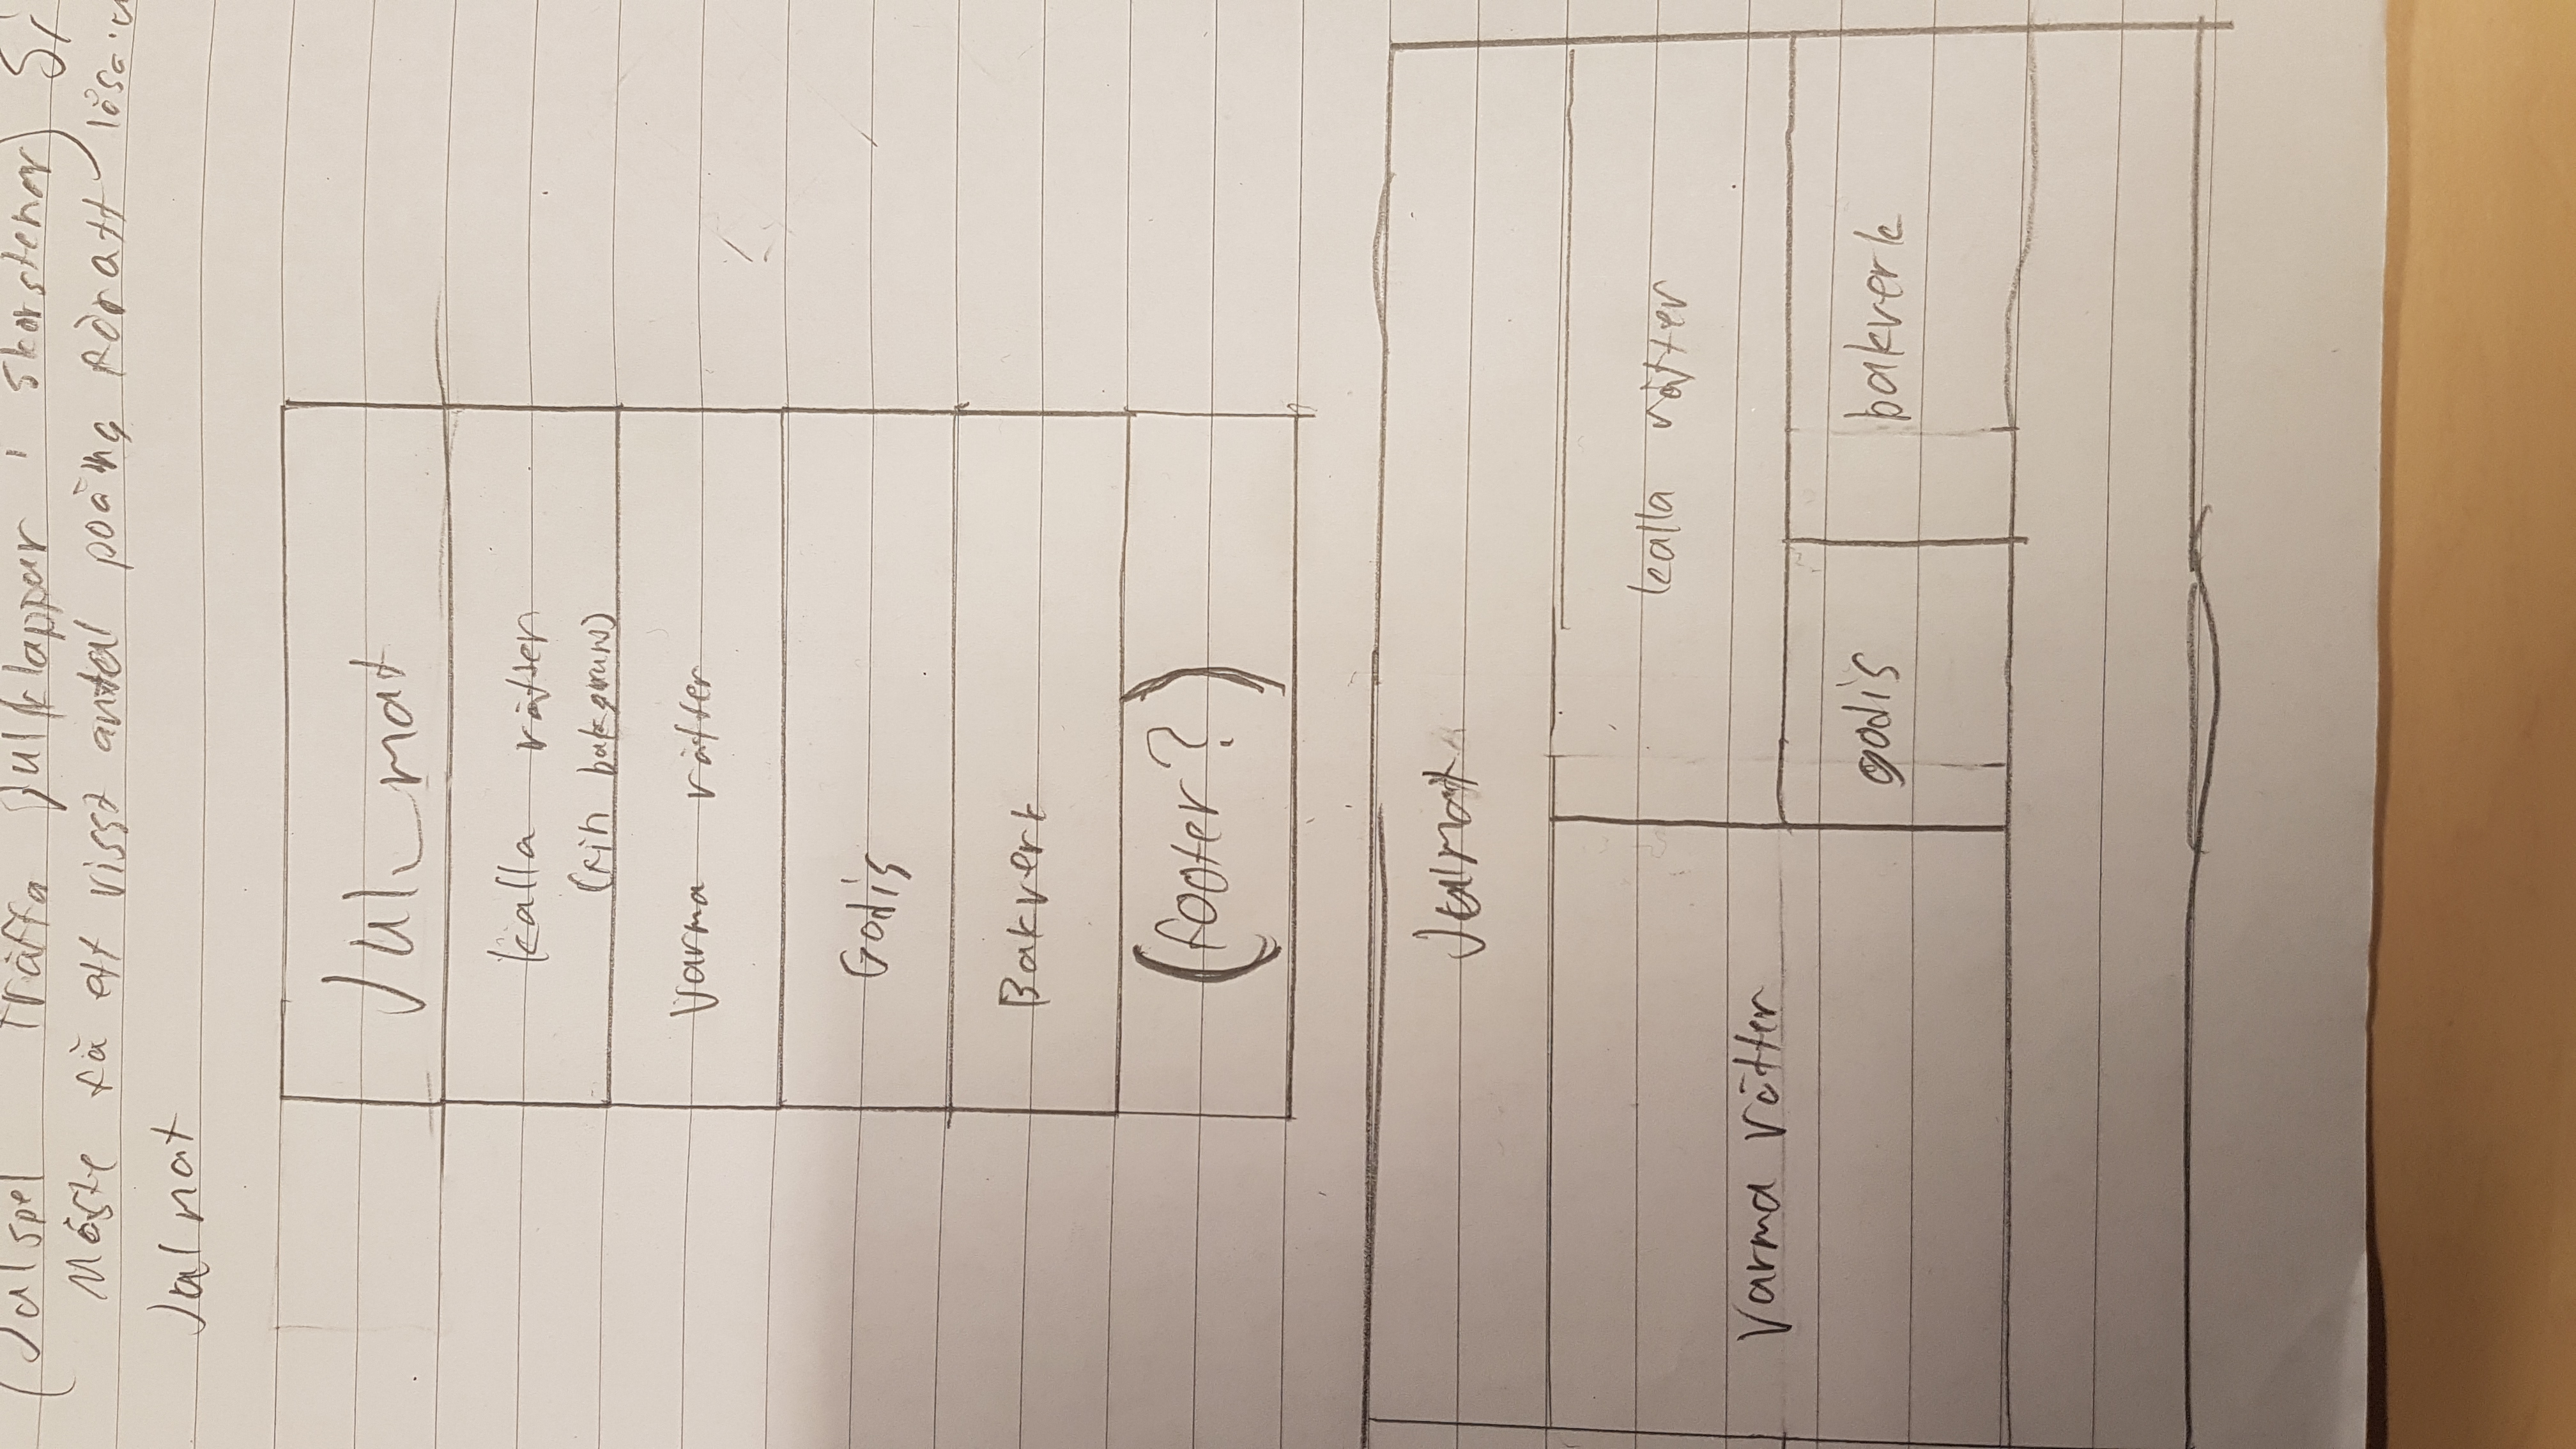 (Julspel Träffa julklappar i skorstenar)
Måste få ett visst antal poäng för att låsa u
Julmat
Jul mat
kalla rätter
(fin bakgrund)
Varma rätter
Godis
Bakverk
(footer?)
Julmat
kalla rätter
Varma rätter
godis
bakverk